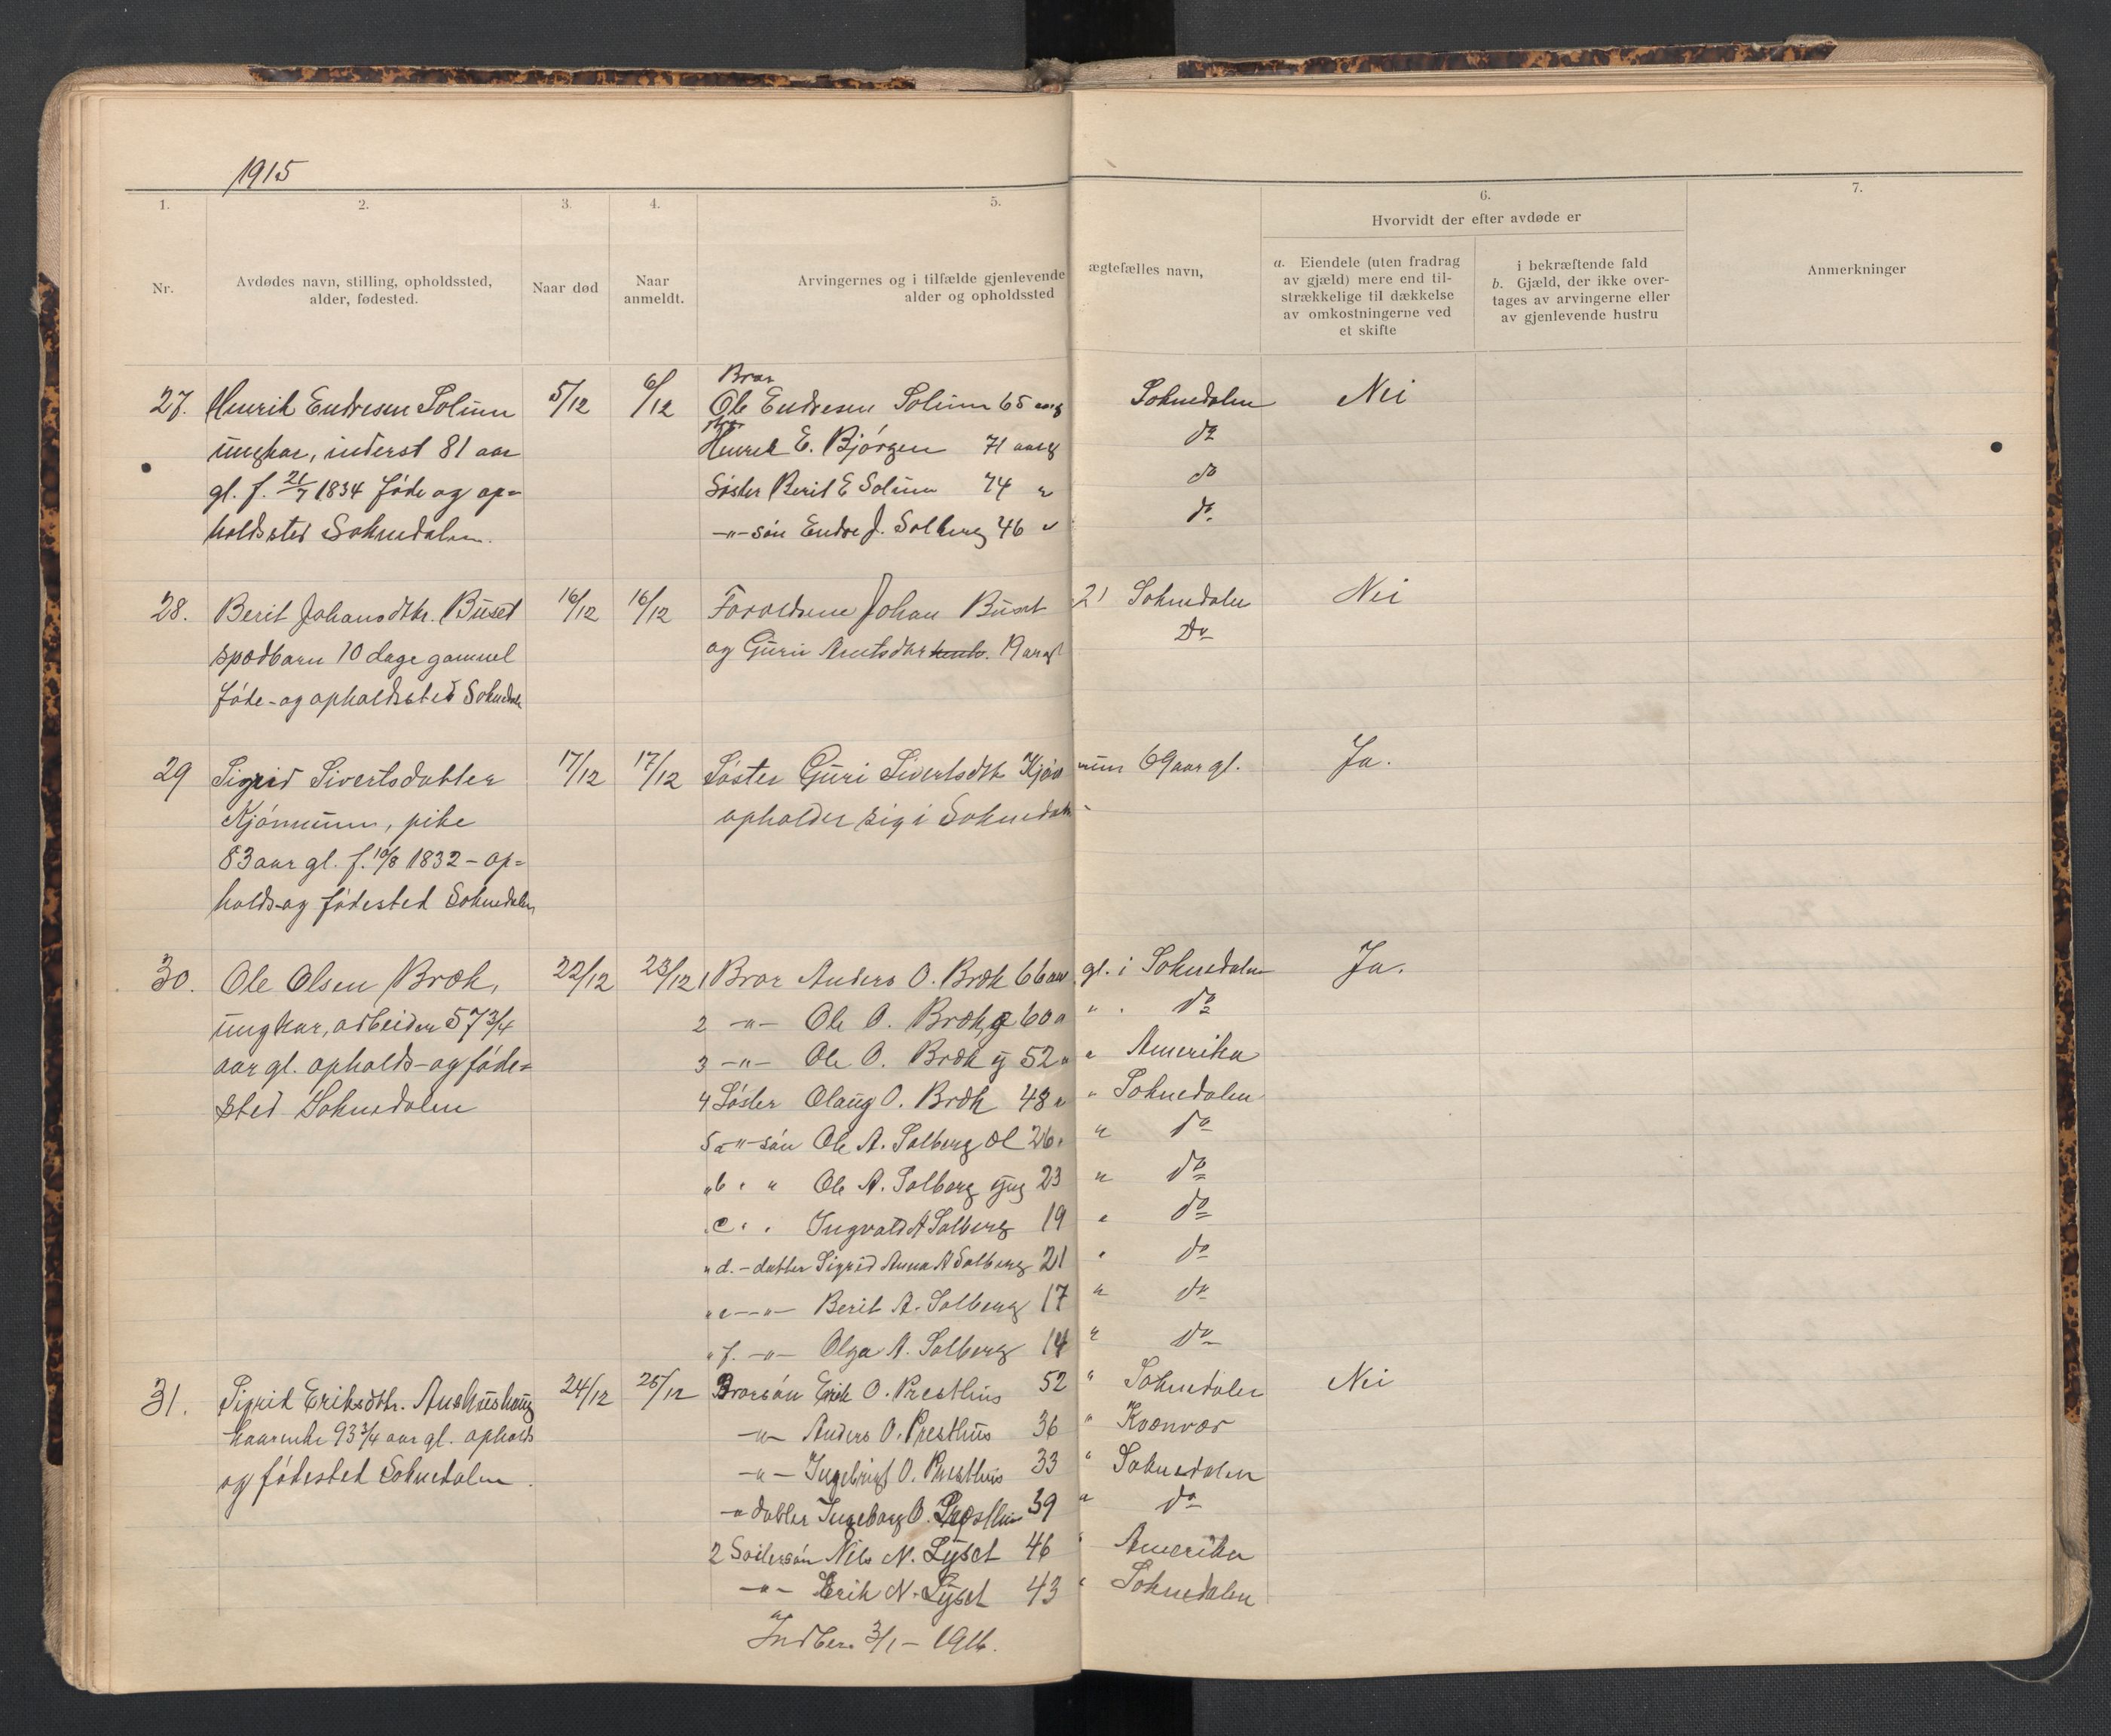 1915
1. 2. 3. 4. 5. 6. 7.
Hvorvidt der efter avdøde er
Nr.
Avdødes navn, stilling, opholdssted,
alder, fødested.
Naar død
Naar
anmeldt.
Arvingernes og i tilfælde gjenlevende ægtefælles navn,
alder og opholdssted
a. Eiendele (uten fradrag
av gjæld) mere end til-
strækkelige til dækkelse
av omkostningerne ved
et skifte
i bekræftende fald
b. Gjæld, der ikke over-
tages av arvingerne eller
av gjenlevende hustru
Anmerkninger
27. Henrik Endresen Solum
ungkar, inderst 81 aar
gl. f. 21/7 1834 føde og op=
holdssted Soknedalen.
5/12 6/12
Bror
Ole Endresen Solum 65 aarg Soknedalen Nei
Henrik E. Bjørgen 71 aarg do
Søster Berit E Solum 74 " do
-"- søn Endre J. Solberg 46 " do
28. Berit Johansdtr. Buset
spædbarn 10 dage gammel
føde- og opholdssted Soknedalen
16/12 16/12
Forældrene Johan Buset 21 Soknedalen Nei
og Guru Arntsdtr 19 aargl Do
29 Sigrid Sivertsdatter
Kjønnum, pike
83 aar gl. f. 10/8 1832 - op=
holds- og fødested Soknedalen
17/12 17/12
Søster Guri Sivertsdtr Kjønnum 69 aar gl. Ja.
opholder sig i Soknedalen
30. Ole Olsen Bræk,
ungkar, arbeider 57 3/4
aar gl. opholds- og føde=
sted Soknedalen
22/12 23/12
1 Bror Anders O. Bræk 66 aar gl. i Soknedalen Ja.
2 -"- Ole O. Bræk 60 " " do
3 -"- Ole O. Bræk y 52 " " Amerika
4 Søster Olaug O. Bræk 48 " " Soknedalen
5 a -"- søn Ole A. Solberg æl 26 " " do
" b " " Ole A. Solberg yng 23 " do
" c " " Ingvald A Solberg 19 " do
" d. - datter Sigrid Anna A Solberg 21 " do
" e -"- Berit A. Solberg 17 " do
" f. -"- Olga A. Solberg 14 " do
31. Sigrid Eriksdtr. Aushushaug
enke 93 3/4 aar gl. opholds
og fødested Soknedalen.
24/12 25/12
Brorsøn Erik O. Presthus 52 " Soknedalen Nei
-"- Anders O. Presthus 36 " Kvænvær
-"- Ingebrigt O. Presthus 33 " Soknedalen
-" datter Ingeborg O. Presthus 39 " do
2 Søstersøn Nils N. Lyset 46 " Amerika
-"- Erik N. Lyset 43 " Soknedalen
Indber. 3/1 - 1916.